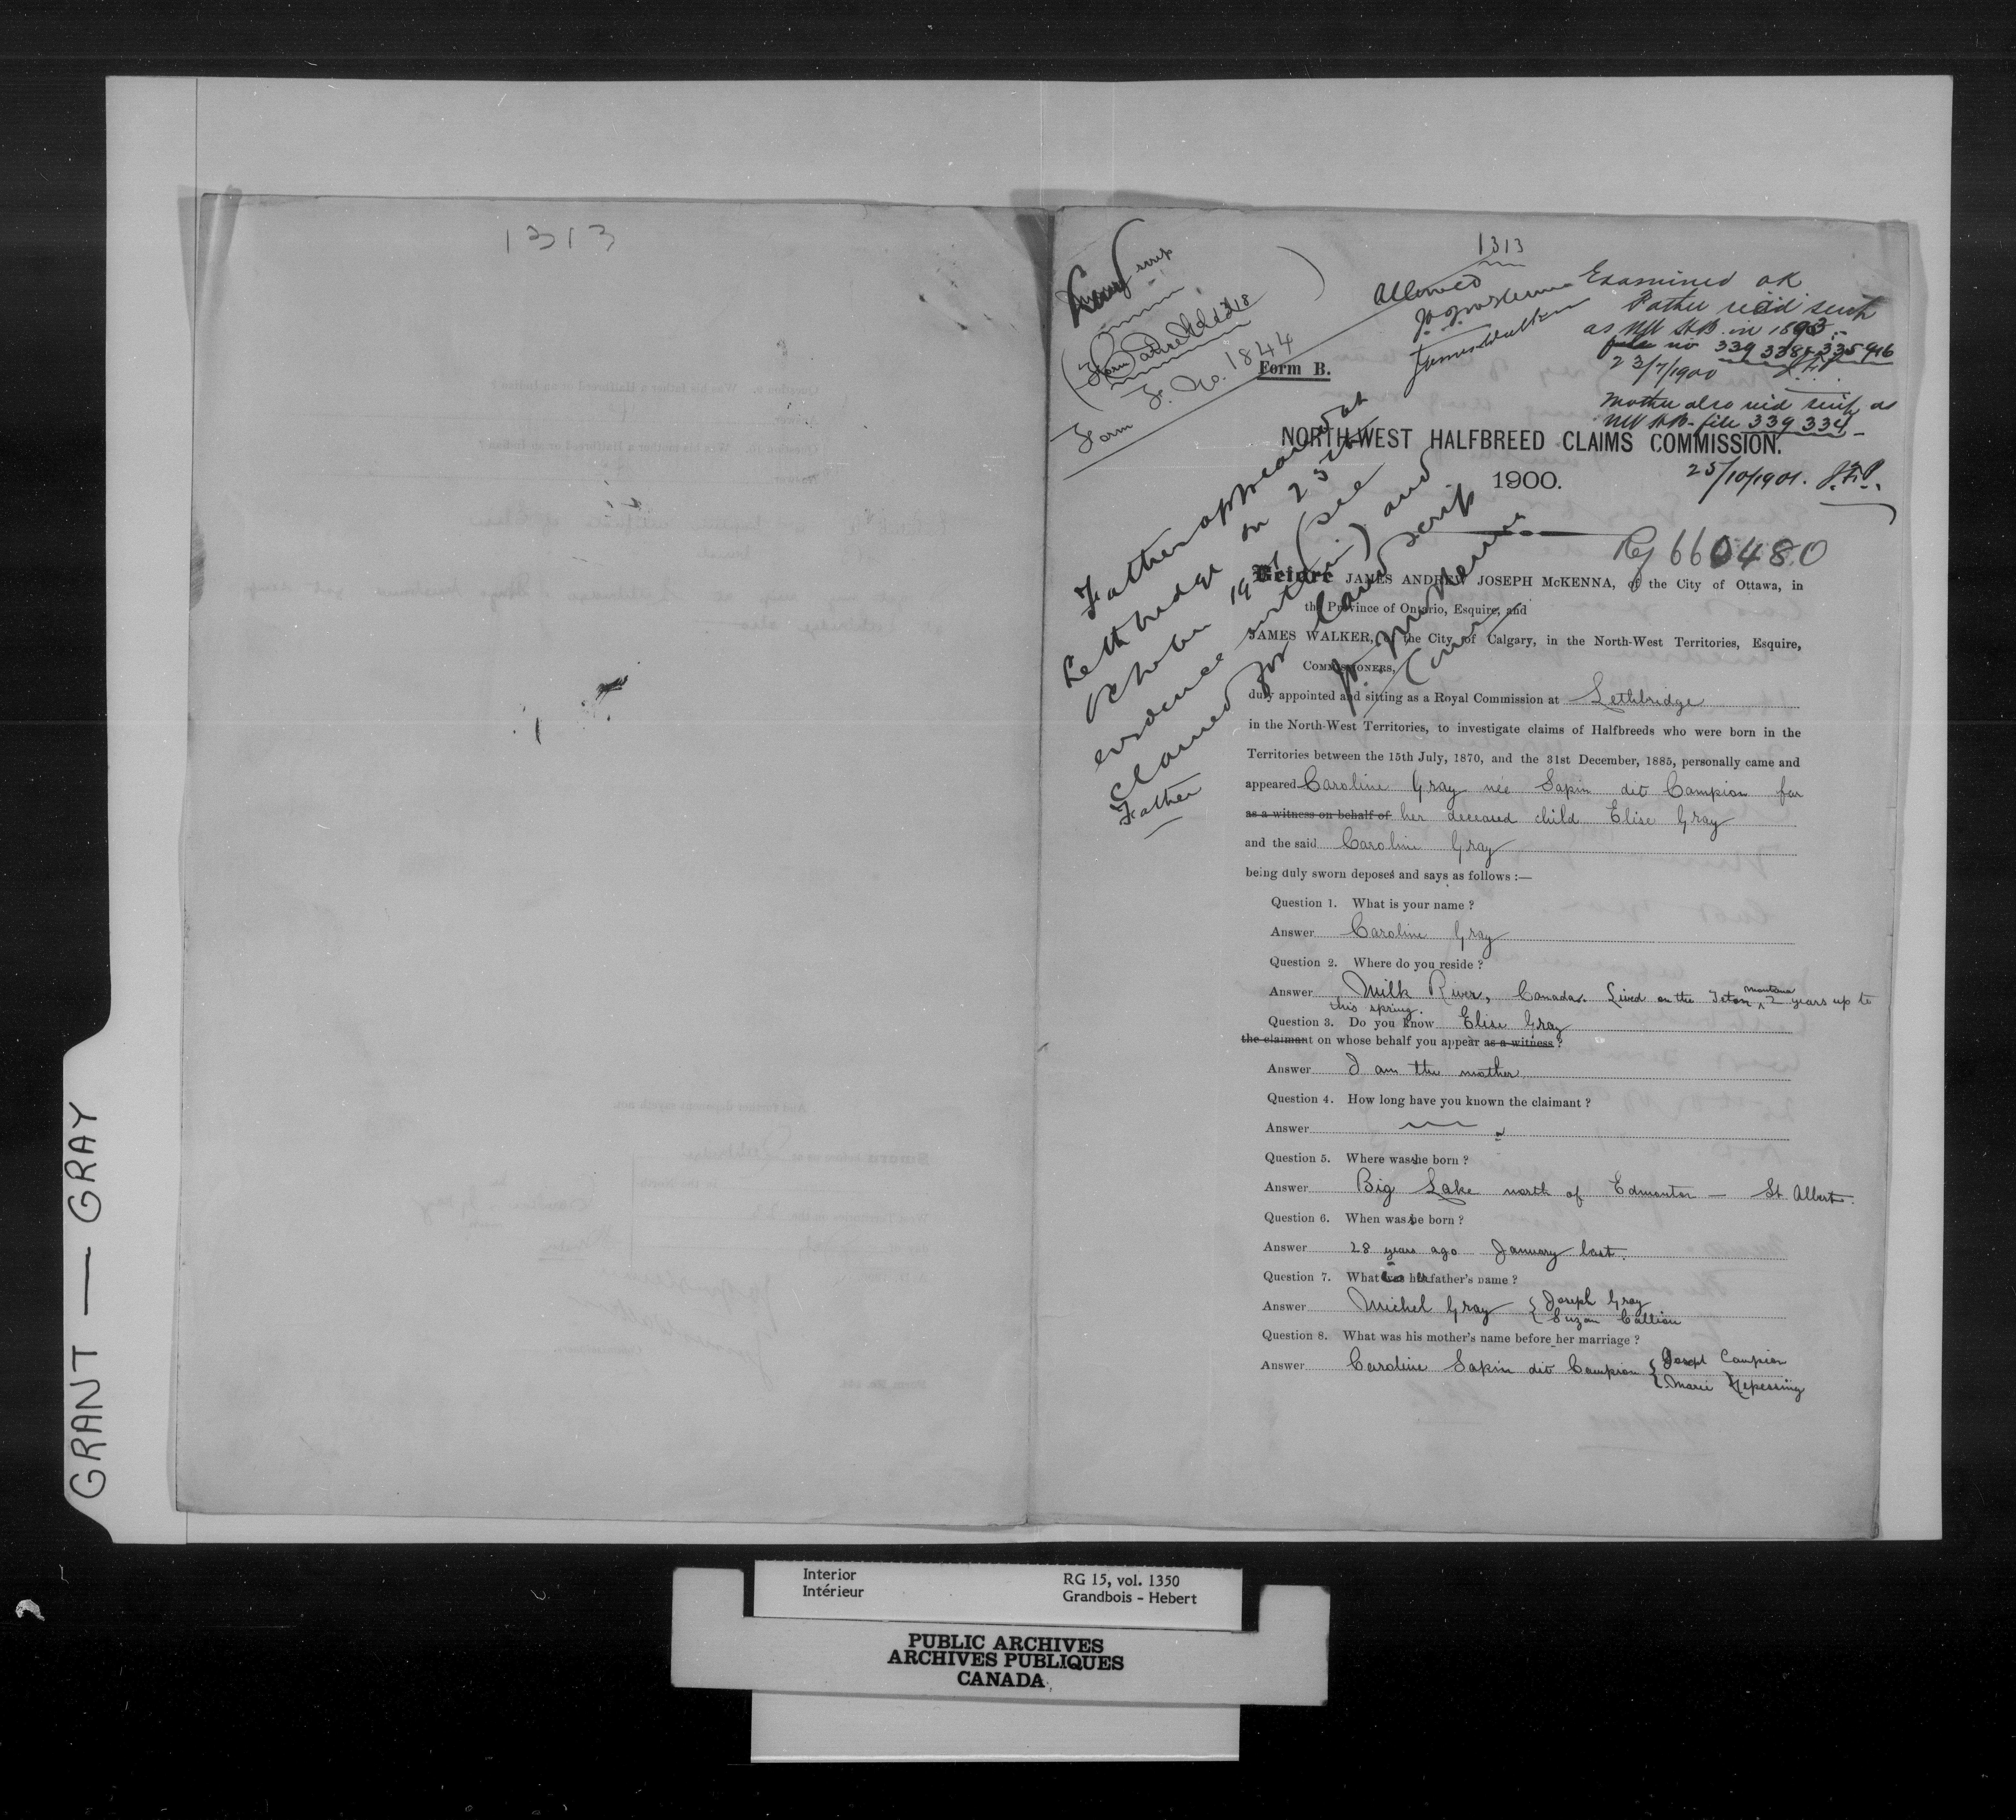 1313
1313
Land scrip
Form F. No. 1844
Allowed
J.A.J. McKenna
James Walker
Examined OK
Father rec'd scrip
as NW H.B. in 1893
file no 339 338 & 335 916
23/7/1900
Mother also rec'd scrip as
NW H.B. file 339 334
25/10/1901. J.F.P.
Form B.
NORTH-WEST HALFBREED CLAIMS COMMISSION.
1900.
Reg 660480
Father appeared at
Lethbridge on 25th
October 1901 (see
evidence within) and
claimed for Land scrip
J.A.J. McKenna
Comr
Father
Before JAMES ANDREW JOSEPH McKENNA, of the City of Ottawa, in
the Province of Ontario, Esquire, and
JAMES WALKER, of the City of Calgary, in the North-West Territories, Esquire,
COMMISSIONERS,
duly appointed and sitting as a Royal Commission at Lethbridge
in the North-West Territories, to investigate claims of Halfbreeds who were born in the
Territories between the 15th July, 1870, and the 31st December, 1885, personally came and
appeared Caroline Gray née Sapin dit Campion for
as a witness on behalf of her deceased child Elise Gray
and the said Caroline Gray
being duly sworn deposes and says as follows :—
Question 1. What is your name ?
Answer Caroline Gray
Question 2. Where do you reside ?
Answer Milk River, Canada. Lived on the Teton Montana 2 years up to
this spring.
Question 3. Do you know Elise Gray
the claimant on whose behalf you appear as a witness ?
Answer I am the mother
Question 4. How long have you known the claimant ?
Answer
Question 5. Where was she born ?
Answer Big Lake north of Edmonton — St Albert.
Question 6. When was she born ?
Answer 28 years ago January last.
Question 7. What is her father's name ?
Answer Michel Gray { Joseph Gray
{ Suzan Callion
Question 8. What was his mother's name before her marriage ?
Answer Caroline Sapin dit Campion { Joseph Campion
{ Marie Nepessing
GRANT — GRAY
Interior
Intérieur
RG 15, vol. 1350
Grandbois - Hebert
PUBLIC ARCHIVES
ARCHIVES PUBLIQUES
CANADA